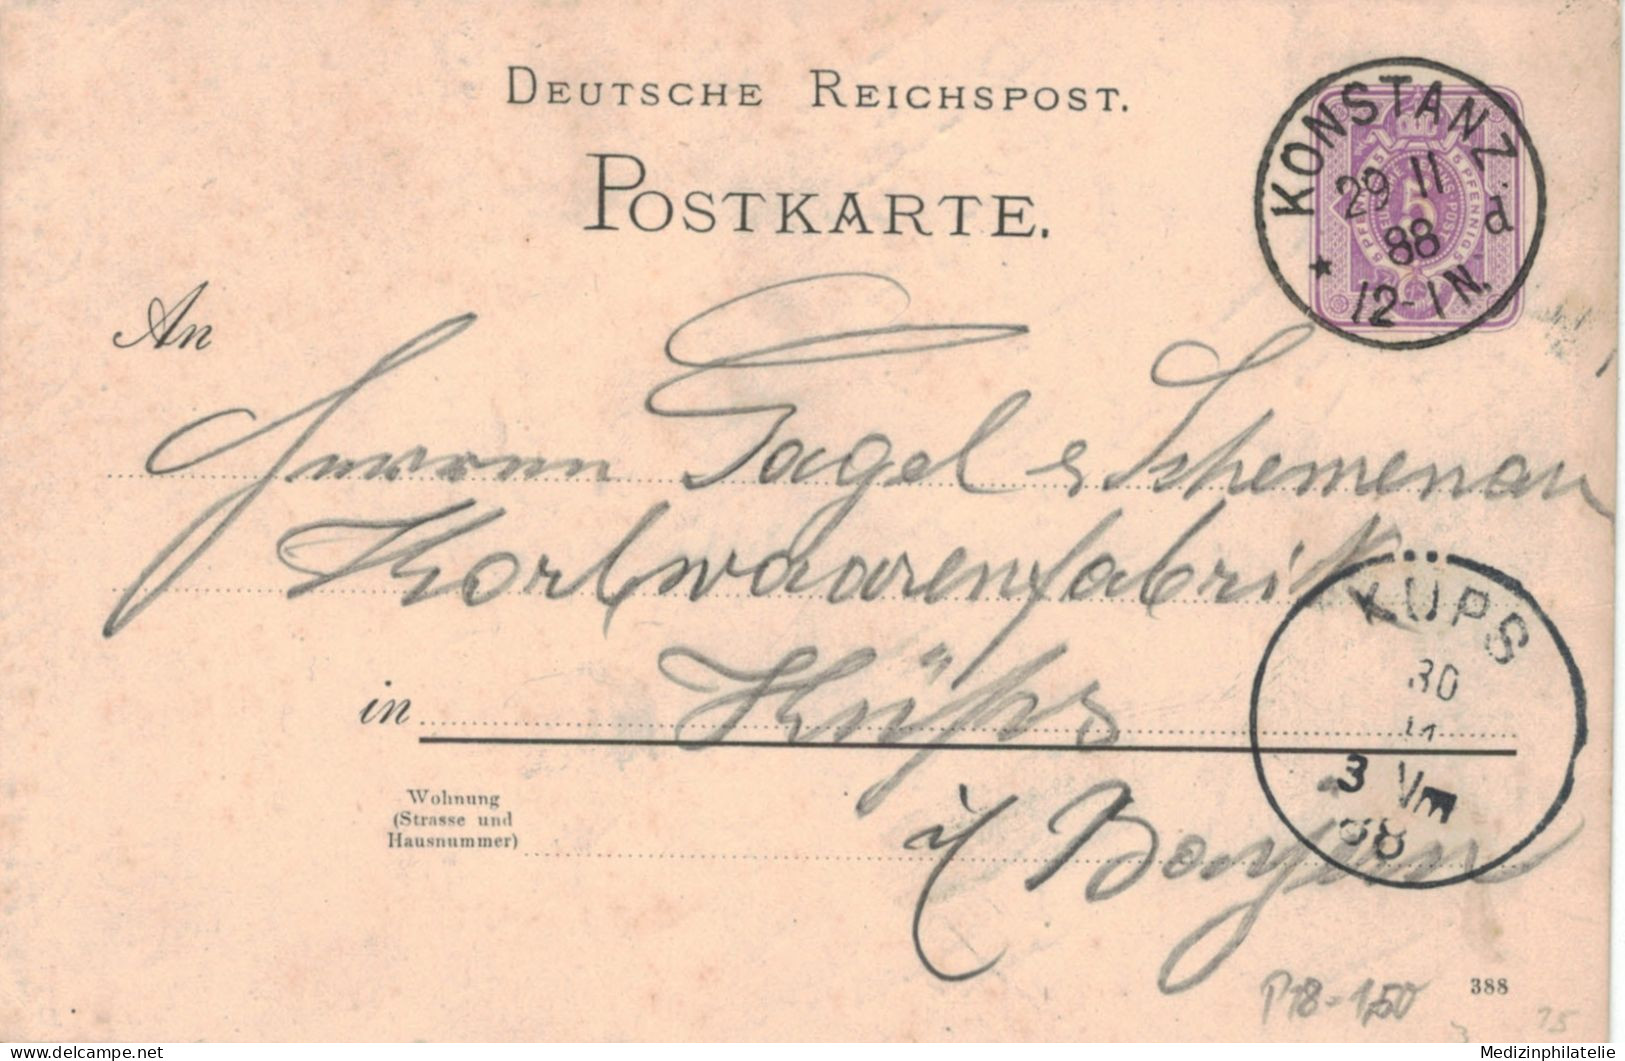 DEUTSCHE REICHSPOST.
POSTKARTE.
KONSTANZ
29 11
88 d.
★ 12-1 N.
5 PFENNIG 5
An
Herren Gagel & Schemenau
Korbwaarenfabrik
in Küps
KÜPS
30
11
3 Vm
88
Wohnung
(Strasse und
Hausnummer)
i/ Bayern
P18-1,50
388
75
delcampe.net
Medizinphilatelie